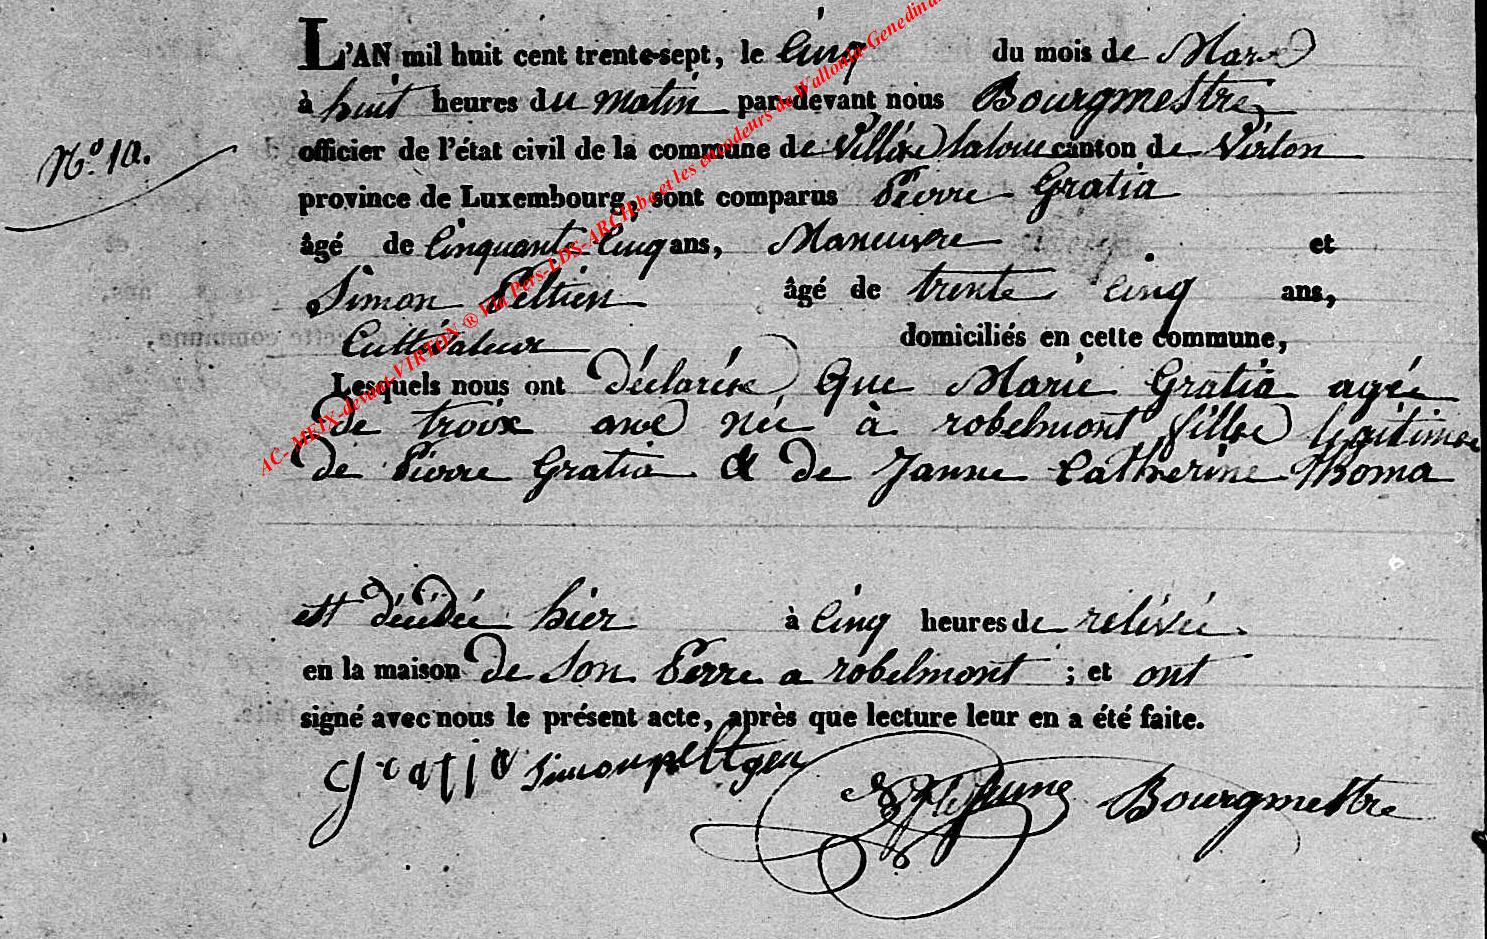 L'AN mil huit cent trente-sept, le Cinq du mois de Mars
à huit heures du matin par-devant nous Bourgmestre
officier de l'état civil de la commune de Villers laloue canton de Virton
N.o 10.
province de Luxembourg, sont comparus Pierre Gratia
âgé de Cinquante Cinq ans, Maneuvre et
Simon Peltien âgé de trente cinq ans,
Cultivateur domiciliés en cette commune,
Lesquels nous ont déclarés Que Marie Gratia agée
De trois ans née à robelmont fille légitime
de Pierre Gratia & de Janne Catherine Thoma
est décédée hier à Cinq heures de relévée
en la maison de son Perre a robelmont ; et ont
signé avec nous le présent acte, après que lecture leur en a été faite.
Gratia Simon peltgen Lejeune Bourgmestre
AC- MEIX-devant-VIRTON ® Via Pers-LDS-ARCH.be et les encodeurs de Wallonia-Genedinan